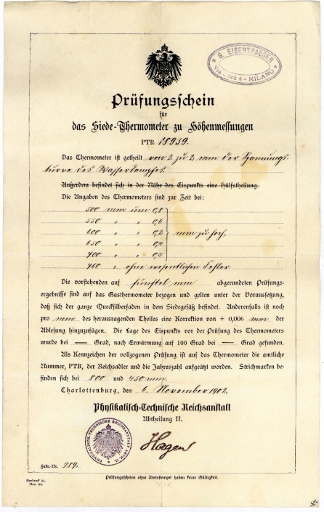 G. EISENTRAEGER
MILANO
Prüfungsschein
für
das Siede-Thermometer zu Höhenmessungen
PTR 18959
Das Thermometer ist getheilt von 2 zu 2 mm der Spannungs-
kurve des Wasserdampfes.
Ausserdem befindet sich in der Nähe des Eispunkts eine Hülfstheilung.
Die Angaben des Thermometers sind zur Zeit bei:
500 mm um 0,8
550 " " 0,6
600 " " 0,2 mm zu hoch,
650 " " 0,4
700 " " 0,2
760 " ohne wesentlichen Fehler.
Die vorstehenden auf fünftel mm abgerundeten Prüfungs-
ergebnisse sind auf das Gasthermometer bezogen und gelten unter der Voraussetzung,
daß sich der ganze Quecksilberfaden in dem Siedegefäß befindet. Anderenfalls ist noch
pro mm des herausragenden Theiles eine Korrektion von + 0,006 mm der
Ablesung hinzuzufügen. Die Lage des Eispunkts vor der Prüfung des Thermometers
wurde bei — Grad, nach Erwärmung auf 100 Grad bei — Grad gefunden.
Als Kennzeichen der vollzogenen Prüfung ist auf das Thermometer die amtliche
Nummer, PTR, der Reichsadler und die Jahreszahl aufgeätzt worden. Strichmarken be-
finden sich bei 800 und 450 mm.
Charlottenburg, den 6. November 1902.
Physikalisch-Technische Reichsanstalt
Abtheilung II.
Hagen
Prüfungsscheine ohne Amtsstempel haben keine Gültigkeit.